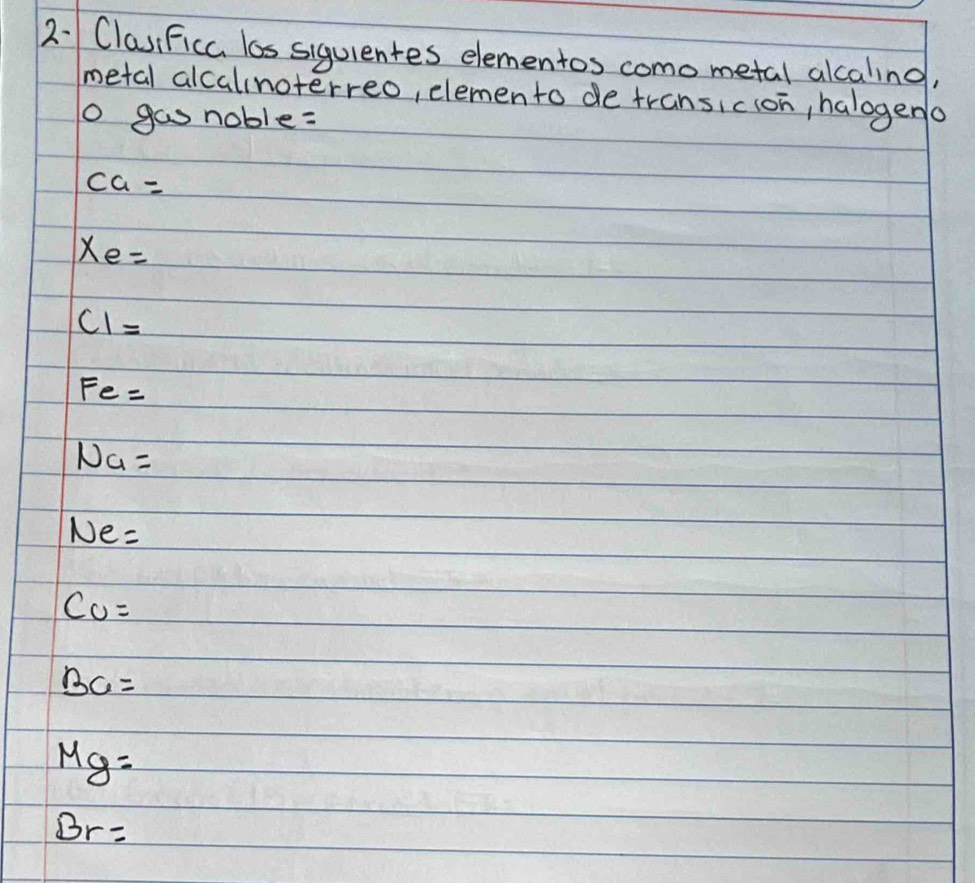 2- Clasifica los siguientes elementos como metal alcalino,
metal alcalinoterreo, elemento de transición, halogeno
o gas noble=
Ca =
Xe=
Cl=
Fe=
Na=
Ne=
Cu=
Ba=
Mg=
Br=